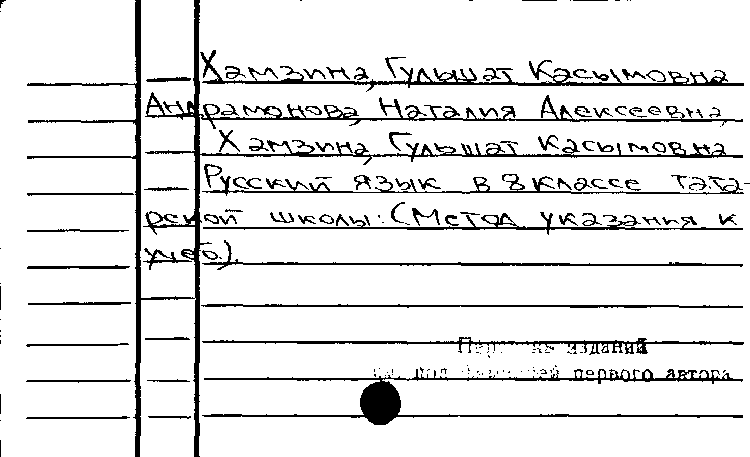 Хамзина, Гульшат Касымовна
Андрамонова, Наталия Алексеевна,
Хамзина, Гульшат Касымовна
Русский язык в 8 классе тата-
рской школы: (Метод указания к
учеб.)
изданий
под первого автора